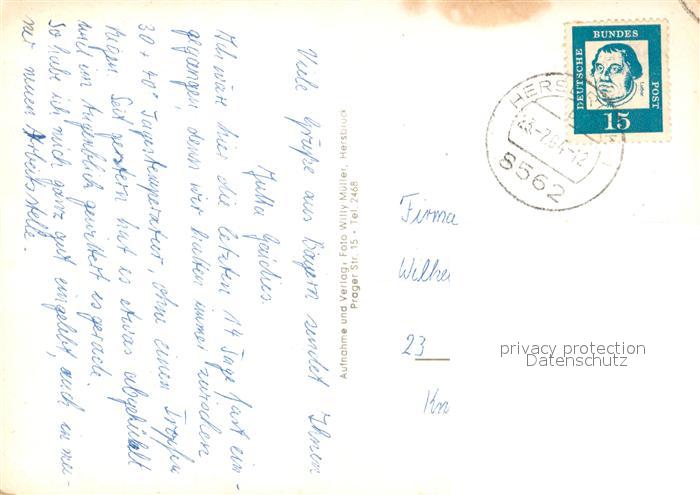 Viele Grüße aus Bayern sendet Ihnen
Jutta
Ich wär hier die letzten 14 Tage fast ein-
gegangen, denn wir hatten immer zwischen
30 + 40° Tagestemperatur, ohne einen Tropfen
Regen. Seit gestern hat es etwas abgekühlt
und im Augenblick gewittert es gerade.
So habe ich mich ganz gut eingelebt, auch in mei-
ner neuen Arbeitsstelle.
Aufnahme und Verlag: Foto Willy Müller, Hersbruck
Prager Str. 15 · Tel. 2468
DEUTSCHE BUNDES POST
Luther
15
23.-7.64-12
8562
Firma
23
privacy protection
Datenschutz